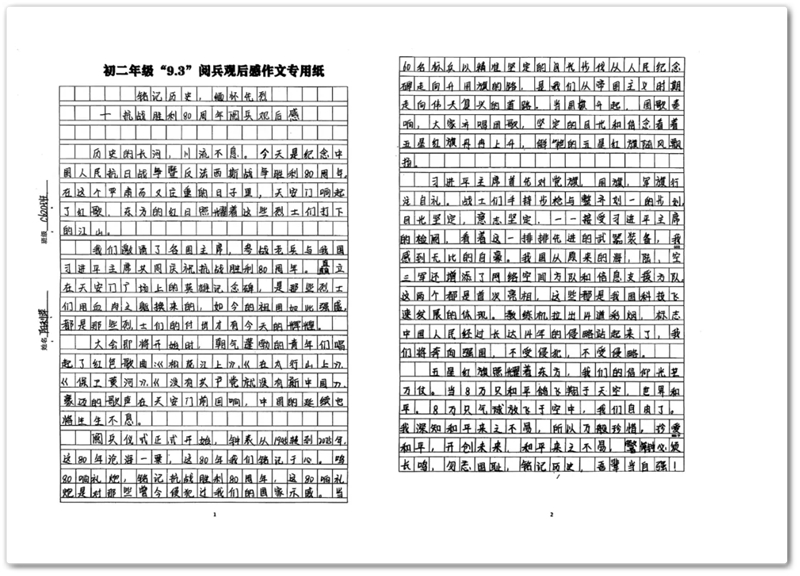 初二年级“9.3”阅兵观后感作文专用纸
铭记历史，缅怀先烈
一抗战胜利80周年阅兵观后感
历史的长河，川流不息。今天是纪念中
国人民抗日战争暨反法西斯战争胜利80周年。
在这个严肃而又庄重的日子里，天安门响起
了红歌，东方的红日照耀着这些烈士们打下
的江山。
我们邀请了各国主席，参战老兵与我国
习进平主席共同庆祝抗战胜利80周年。矗立
在天安门广场上的英雄纪念碑，是那些烈士
们用血肉之躯换来的，如今的祖国如此强盛，
都是那些烈士们的付出才有今天的辉煌。
大会即将开始时，朝气蓬勃的青年们唱
起了红色歌曲《松花江上》，《在太行山上》，
《保卫黄河》，《没有共产党就没有新中国》，
豪迈的歌声在天安门前回响，中国的延续也
将生生不息。
阅兵仪式正式开始，钟表从1945转到2025年，
这80年沧海一粟，这80年我们铭记于心。鸣
80响礼炮，铭记抗战胜利80周年，这80响礼
炮是对那些曾今侵犯过我们的国家示威。当
班级
姓名
1
60名标兵以精准坚定的步伐从人民纪念
碑走向升国旗的路，是我们从帝国主义时期
走向伟大复兴的道路。当国旗升起，国歌奏
响，大家齐唱国歌，坚定的目光和信念看着
五星红旗冉冉上升，鲜艳的五星红旗随风飘
扬。
习进平主席首先对党旗，国旗，军旗行
注目礼。战士们手持步枪与整齐划一的步划，
目光坚定，意志坚定，一一接受习进平主席
的检阅。看着这一排排先进的武器装备，我
感到无比的自豪。我国从原来的海，陆，空
三军还增添了网络空间方队和信息支援方队。
这两个都是首次亮相，这些都是我国科技飞
速发展的体现。教练机拉出片道彩烟，标志
中国人民经过长达14年的侵略站起来了，我
们将奔向强国，不受侵犯，不受侵略。
五星红旗照耀着东方，我们的信仰光芒
万仗。当8万只和平鸽飞翔于天空，世界和
平。8万只气球放飞于空中，我们自由了。
我深知和平来之不易，所以万般珍惜。珍爱
和平，开创未来，和平来之不易，警钟必须
长鸣，勿忘国耻，铭记历史，吾辈当自强！
2